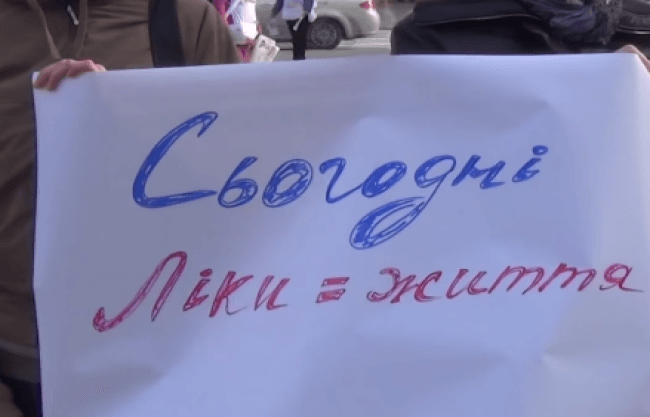 Сьогодні
Ліки = життя